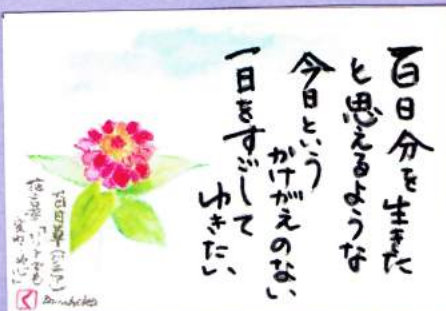 百日分を生きた
と思えるような
今日という
かけがえのない
一日をすごして
ゆきたい